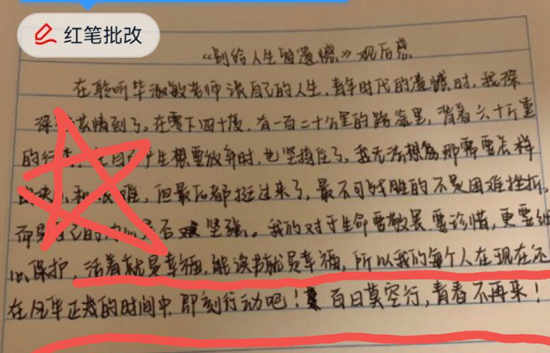 红笔批改
《别给人生留遗憾》观后感
在聆听毕淑敏老师谈自己的人生，青年时代的遗憾时，我深
深 到了。在零下四十度，有一百二十公里的路籴里，背着六十斤重
的行 生想要放弃时，也坚持住了，我无法想象那需要怎样
难，但最后都挺过来了，最不可战胜的不是困难挫折，
而是自己的 是否 坚强。我们对于生命要敬畏要珍惜，更要
以保护，活着就是幸福，能读书就是幸福，所以我们每个人在现在还
在风华正茂的时间中，即刻行动吧！百日莫空行，青春不再来！